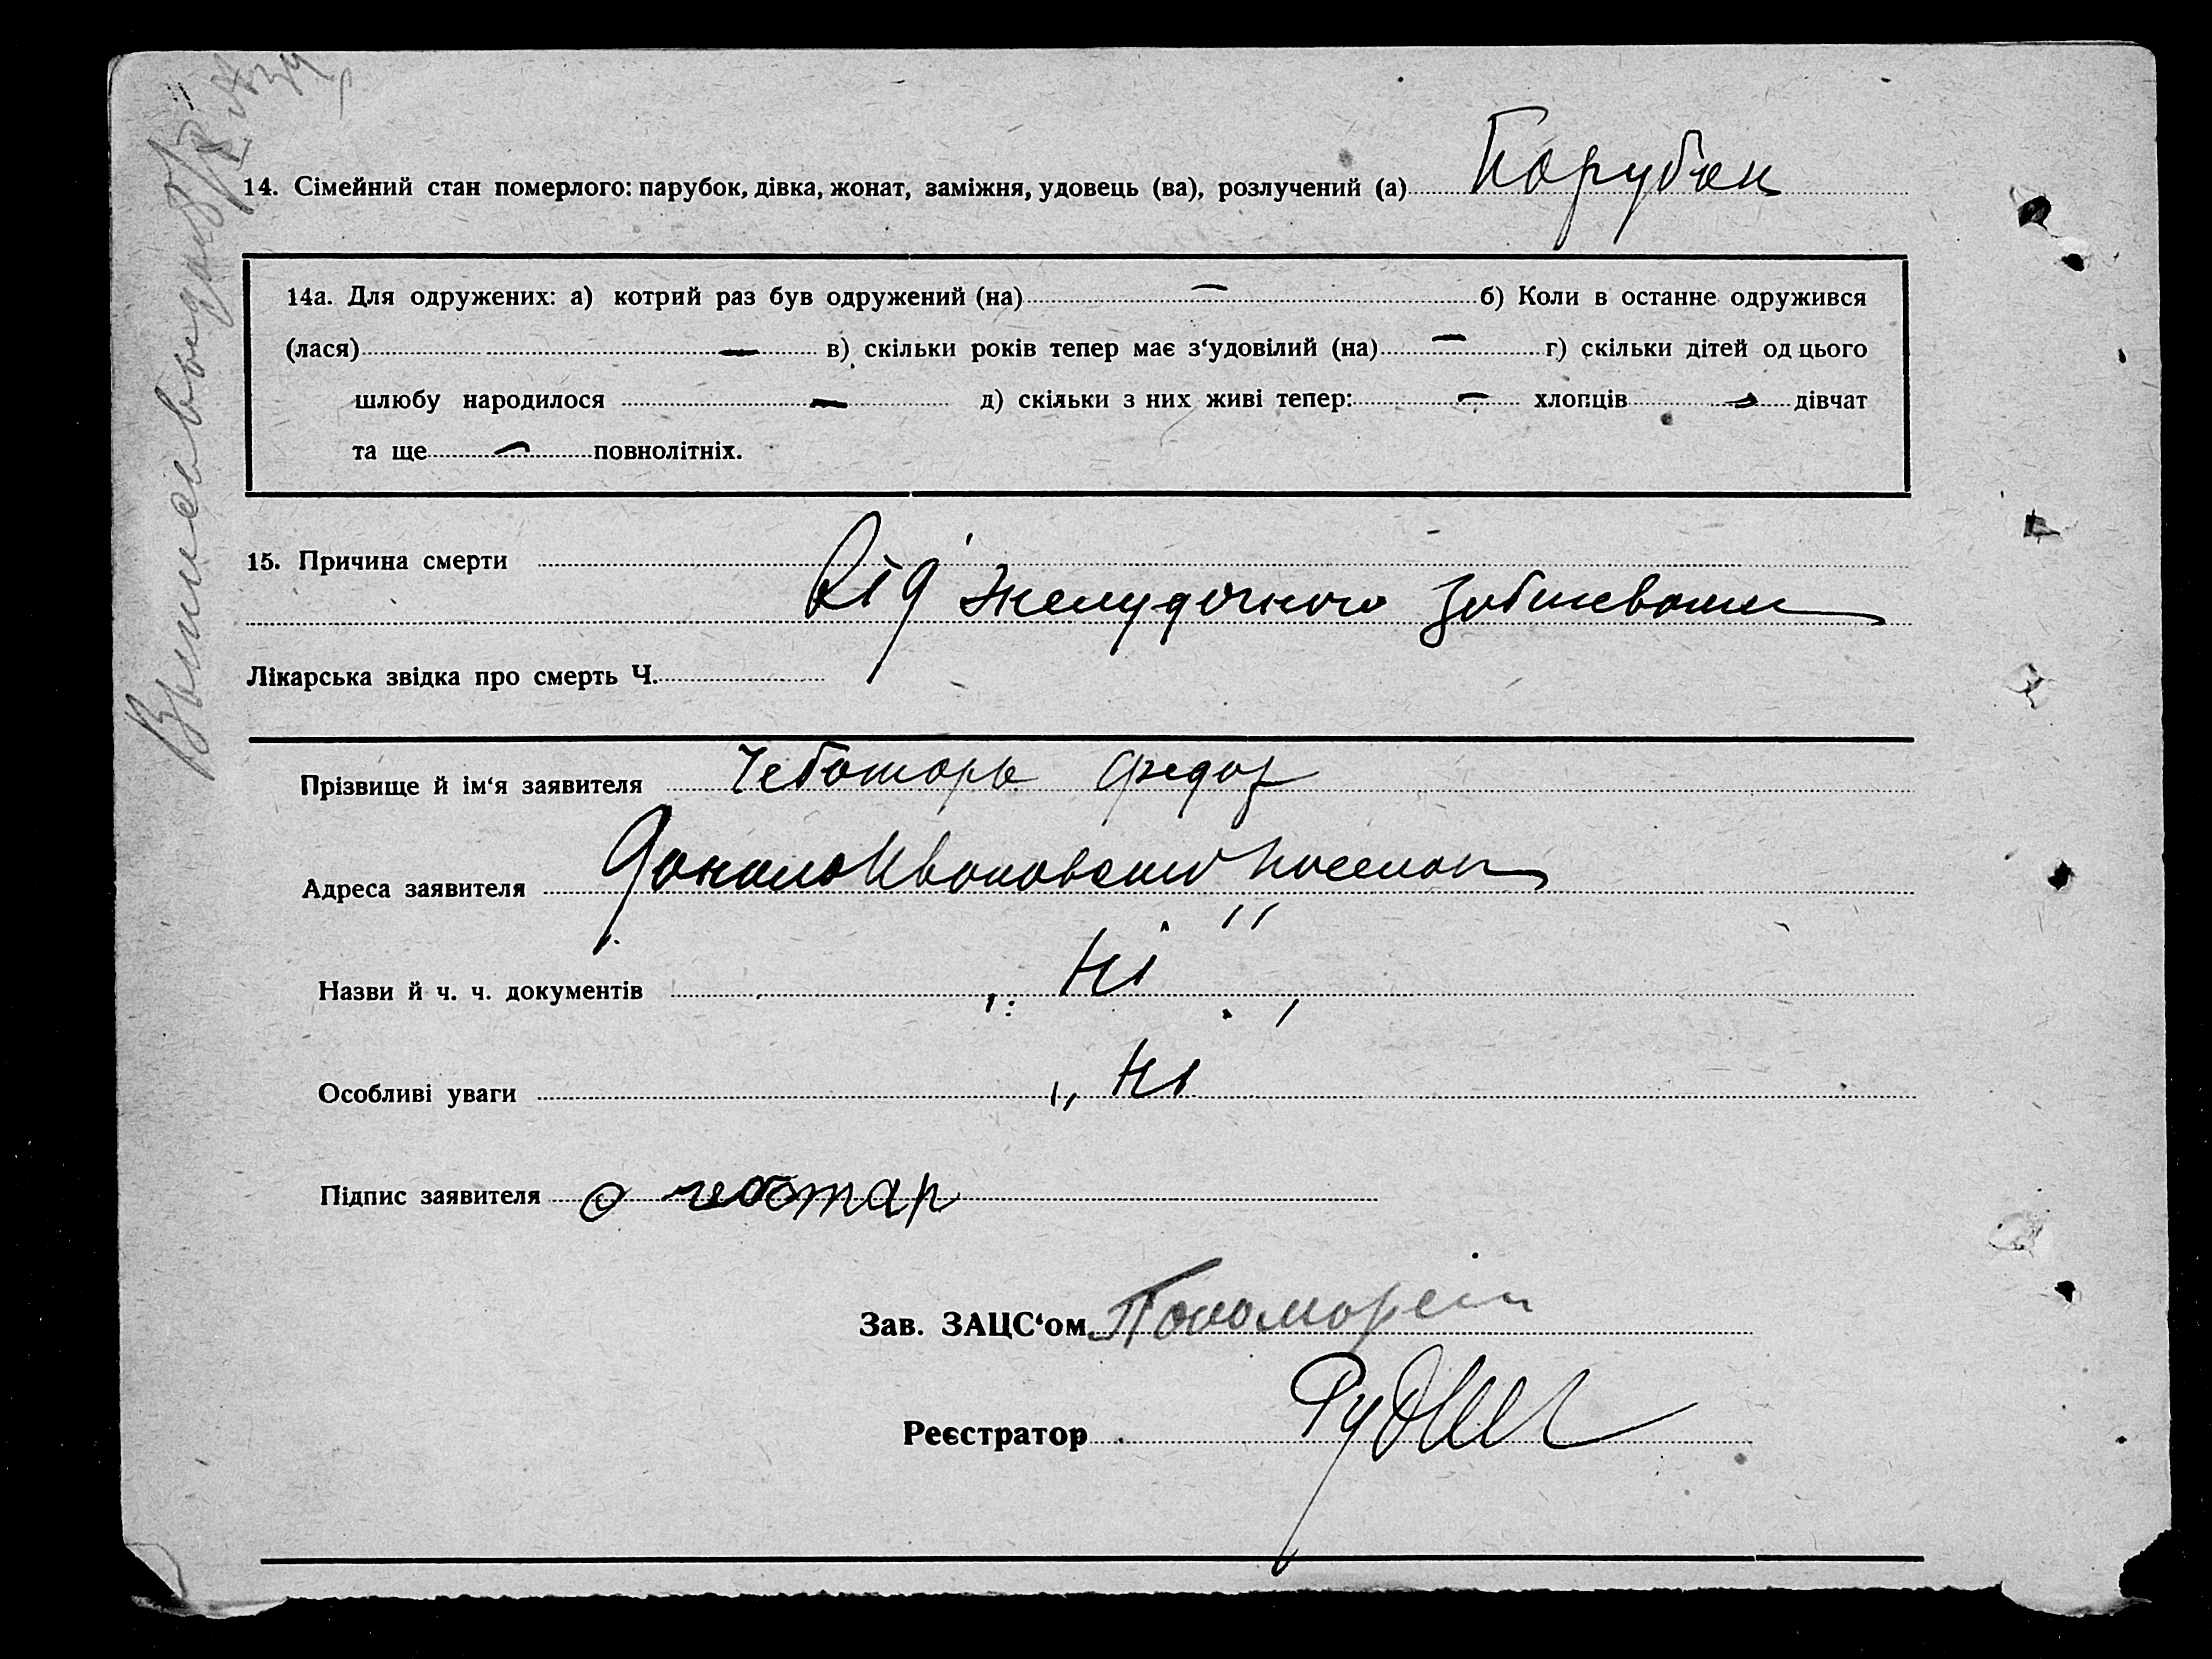 14. Сімейний стан померлого: парубок, дівка, жонат, заміжня, удовець (ва), розлучений (а) Парубок
14а. Для одружених: а) котрий раз був одружений (на) — б) Коли в останнє одружився
(лася) — в) скільки років тепер має з‘удовілий (на) — г) скільки дітей од цього
шлюбу народилося — д) скільки з них живі тепер: — хлопців — дівчат
та ще — повнолітніх.
15. Причина смерти
Від желудочного
Лікарська звідка про смерть Ч.
Прізвище й ім‘я заявителя Чеботорь Федор
Адреса заявителя поселок
Назви й ч. ч. документів „Ні"
Особливі уваги „Ні
Підпис заявителя
Зав. ЗАЦС‘ом
Реєстратор